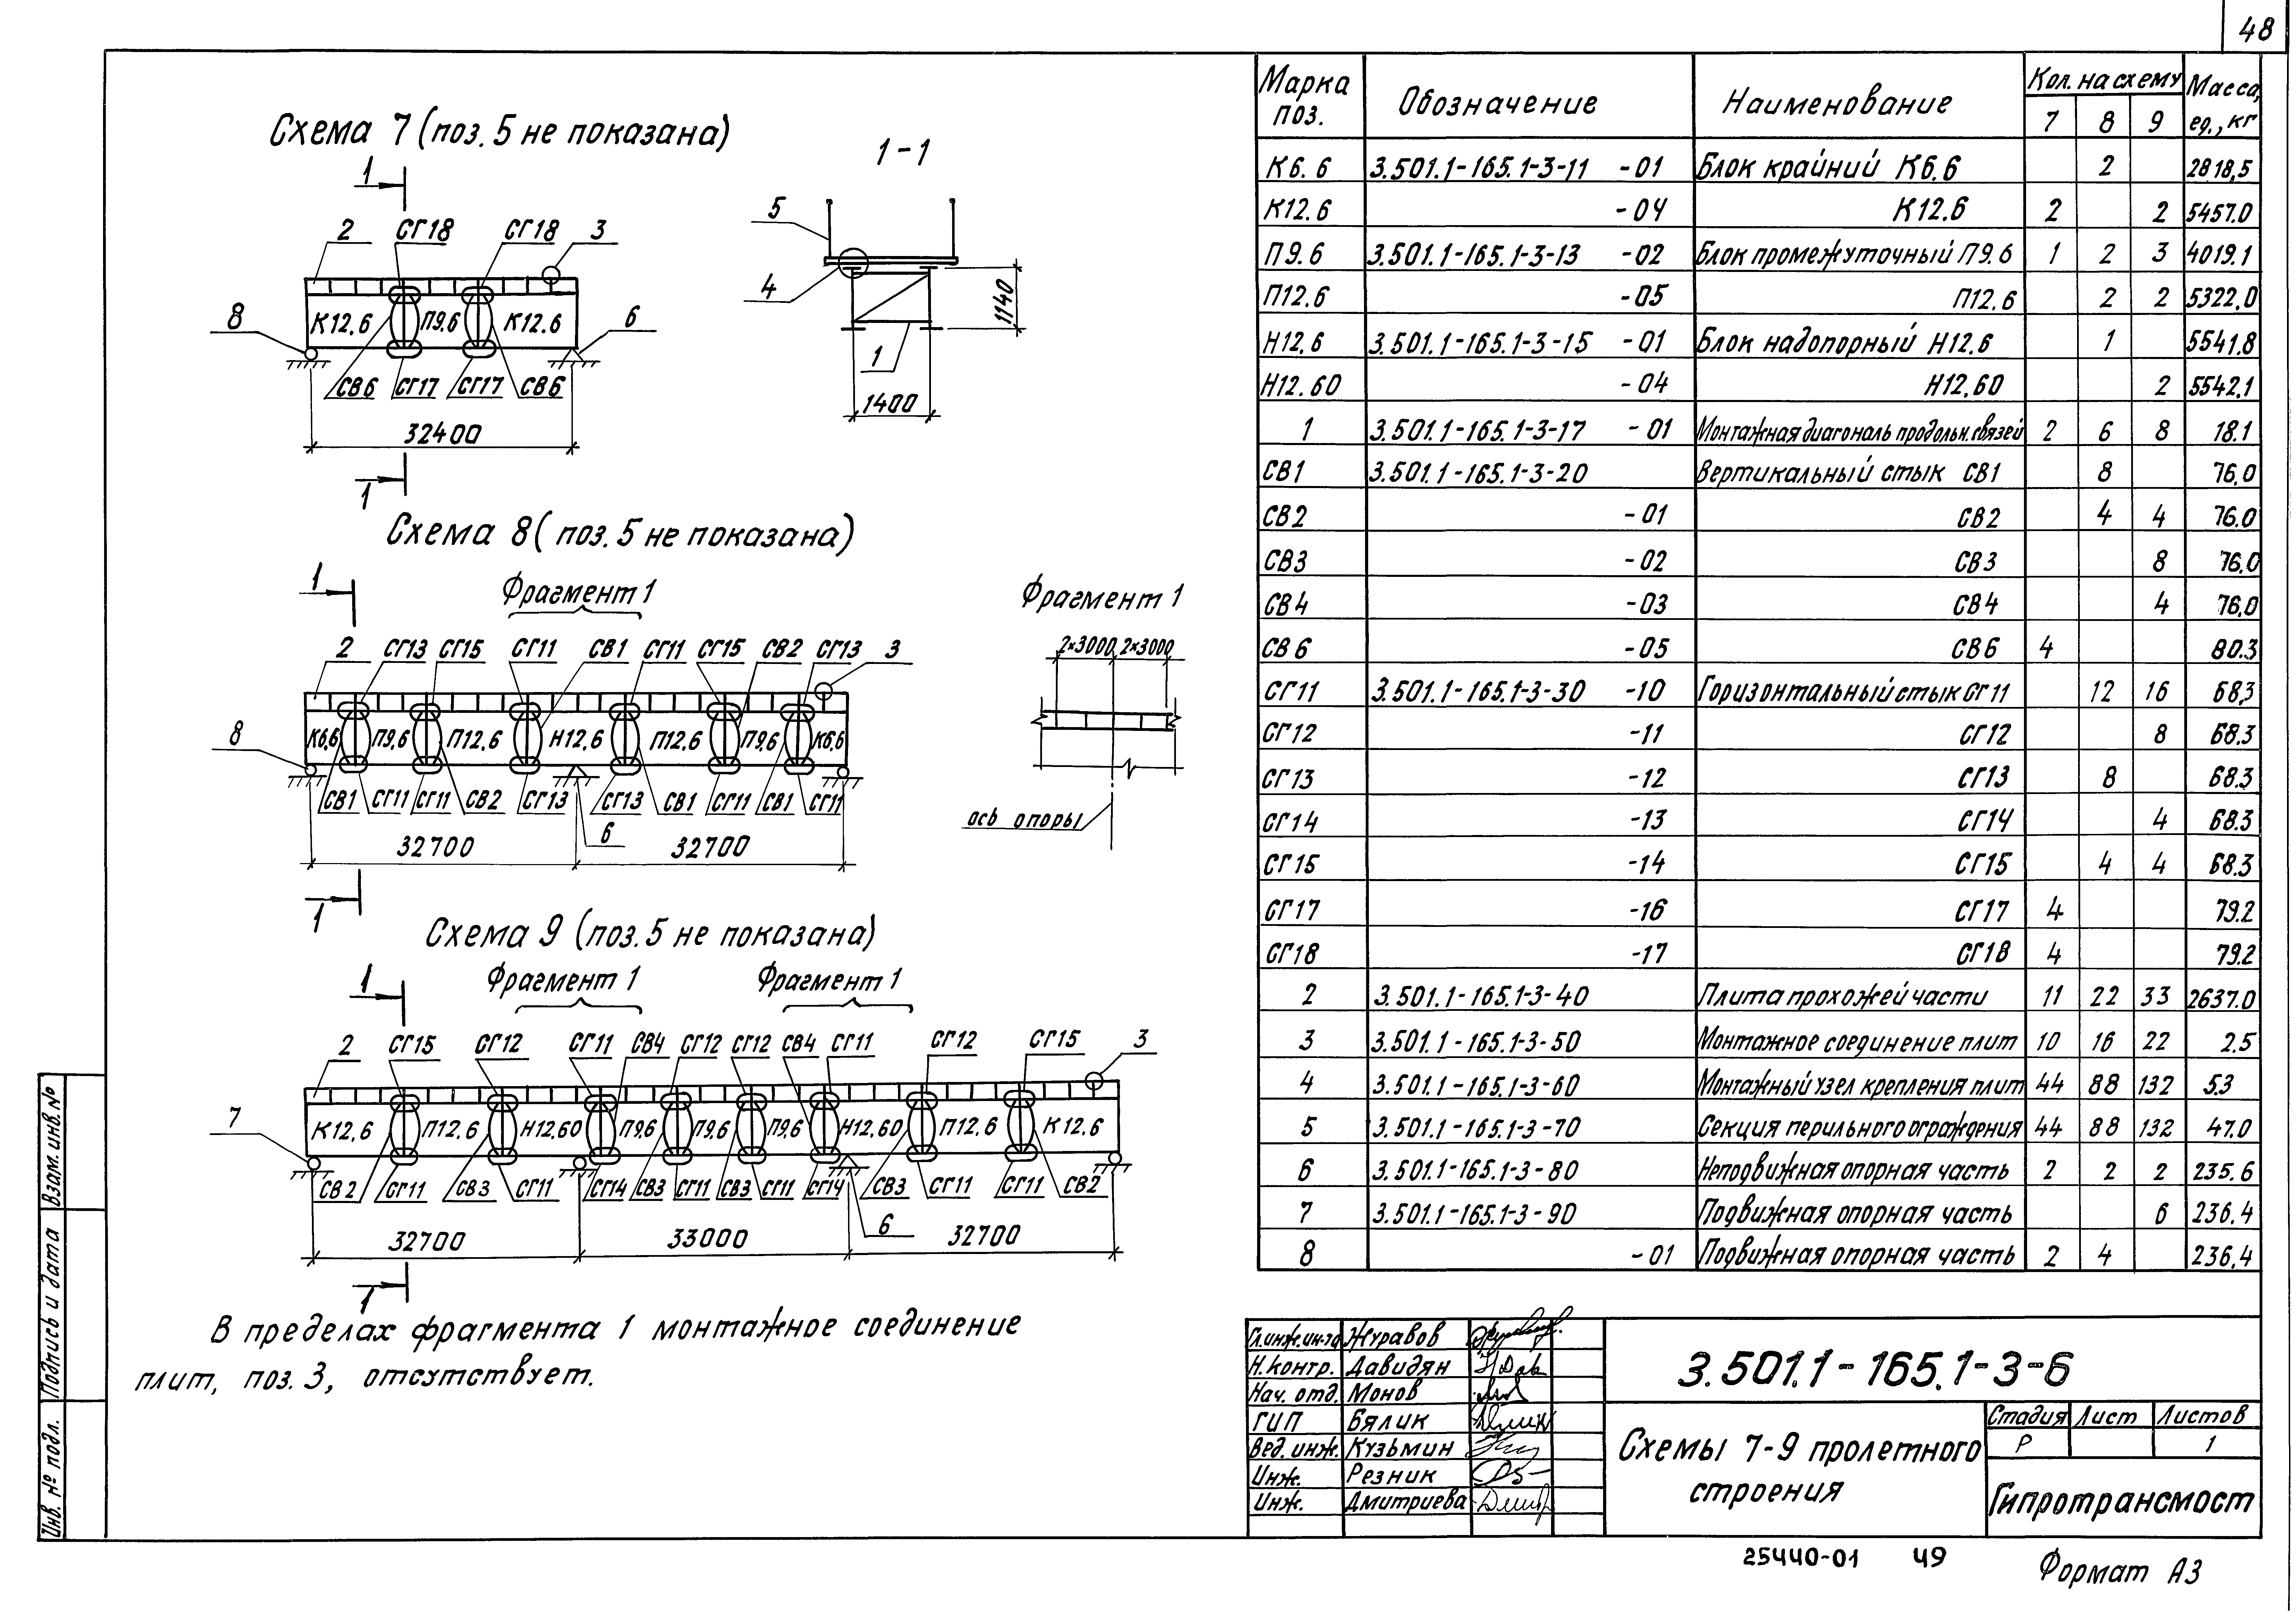 48
Схема 7 (поз. 5 не показана)
1
2 СГ18 СГ18 3
К12.6 П9.6 К12.6
8 6
СВ6 СГ17 СГ17 СВ6
32400
1
1-1
5
4
1
1140
1400
Схема 8 (поз. 5 не показана)
1
Фрагмент 1
2 СГ13 СГ15 СГ11 СВ1 СГ11 СГ15 СВ2 СГ13 3
К6.6 П9.6 П12.6 Н12.6 П12.6 П9.6 К6.6
8
СВ1 СГ11 СГ11 СВ2 СГ13 СГ13 СВ1 СГ11 СВ1 СГ11
6
32700 32700
1
Фрагмент 1
2×3000 2×3000
ось опоры
Схема 9 (поз. 5 не показана)
1
Фрагмент 1 Фрагмент 1
2 СГ15 СГ12 СГ11 СВ4 СГ12 СГ12 СВ4 СГ11 СГ12 СГ15 3
К12.6 П12.6 Н12.60 П9.6 П9.6 П9.6 Н12.60 П12.6 К12.6
7
СВ2 СГ11 СВ3 СГ11 СГ14 СВ3 СГ11 СВ3 СГ11 СГ14 СВ3 СГ11 СГ11 СВ2
6
32700 33000 32700
1
В пределах фрагмента 1 монтажное соединение
плит, поз. 3, отсутствует.
Марка поз. Обозначение Наименование Кол. на схему Масса, ед., кг
7 8 9
К6.6 3.501.1-165.1-3-11 -01 Блок крайний К6.6 2 2818,5
К12.6 -04 К12.6 2 2 5457.0
П9.6 3.501.1-165.1-3-13 -02 Блок промежуточный П9.6 1 2 3 4019.1
П12.6 -05 П12.6 2 2 5322.0
Н12.6 3.501.1-165.1-3-15 -01 Блок надопорный Н12.6 1 5541.8
Н12.60 -04 Н12.60 2 5542.1
1 3.501.1-165.1-3-17 -01 Монтажная диагональ продольн. связей 2 6 8 18.1
СВ1 3.501.1-165.1-3-20 Вертикальный стык СВ1 8 76.0
СВ2 -01 СВ2 4 4 76.0
СВ3 -02 СВ3 8 76.0
СВ4 -03 СВ4 4 76.0
СВ6 -05 СВ6 4 80.3
СГ11 3.501.1-165.1-3-30 -10 Горизонтальный стык СГ11 12 16 68,3
СГ12 -11 СГ12 8 68.3
СГ13 -12 СГ13 8 68.3
СГ14 -13 СГ14 4 68.3
СГ15 -14 СГ15 4 4 68.3
СГ17 -16 СГ17 4 79.2
СГ18 -17 СГ18 4 79.2
2 3.501.1-165.1-3-40 Плита прохожей части 11 22 33 2637.0
3 3.501.1-165.1-3-50 Монтажное соединение плит 10 16 22 2.5
4 3.501.1-165.1-3-60 Монтажный узел крепления плит 44 88 132 5.3
5 3.501.1-165.1-3-70 Секция перильного ограждения 44 88 132 47.0
6 3.501.1-165.1-3-80 Неподвижная опорная часть 2 2 2 235.6
7 3.501.1-165.1-3-90 Подвижная опорная часть 6 236.4
8 -01 Подвижная опорная часть 2 4 236.4
Гл.инж.ин-та Журавов
Н.контр. Давидян
Нач. отд. Монов
ГИП Бялик
Вед. инж. Кузьмин
Инж. Резник
Инж. Дмитриева
3.501.1-165.1-3-6
Схемы 7-9 пролетного
строения
Стадия Лист Листов
Р 1
Гипротрансмост
25440-01 49
Формат А3
Взам. инв. №
Подпись и дата
Инв. № подл.